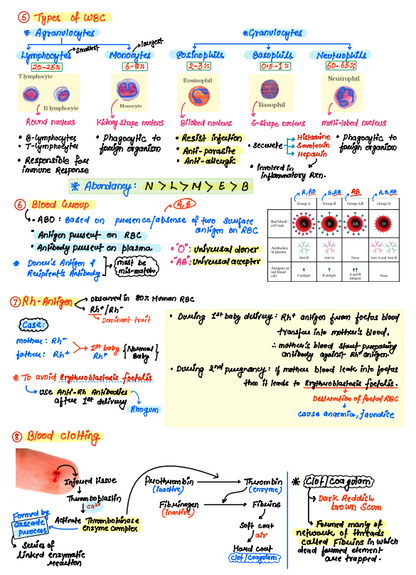 ⑤ Types of WBC
* Agranulocytes
*Granulocytes
Lymphocytes
smallest
Monocytes
largest
Eosinophils
Basophils
Neutrophils
20-25%
6-8%
2-3%
0.5-1%
60-65%
T lymphocyte
B lymphocyte
Monocyte
Eosinophil
Basophil
Neutrophil
Round nucleus
Kidney shape nucleus
Bilobed nucleus
S-shape nucleus
Multi-lobed nucleus
• B-lymphocytes
• T-lymphocytes
• Responsible for
immune Response
• Phagocytic to
foreign organism
• Resist infection
• Anti-parasite
• Anti-allergic
secrete
Histamine
Serotonin
Heparin
• Involved in
inflammatory Rxn.
• Phagocytic to
foreign organism
* Abundancy: N > L > M > E > B
⑥ Blood Group
A, B
• ABO: Based on presence/absense of two surface
antigen on RBC
• Antigen present on RBC
• Antibody present on plasma
* Donor's Antigen &
Recipient's Antibody
must be
mis-match
• "O": universal donor
• "AB": universal acceptor
Group A
Group B
Group AB
Group O
Red blood
cell type
Antibodies
in plasma
Anti-B
Anti-A
None
Anti-A and Anti-B
Antigens in
red blood
cell
A antigen
B antigen
A and B antigens
None
⑦ Rh-Antigen
Observed in 80% Human RBC
Rh⁺/Rh⁻
Dominant trait
Case:
mother: Rh⁻
father: Rh⁺
1st baby
Rh⁺
Normal
Baby
* To avoid Erythroblastosis foetalis
use Anti-Rh Antibodies
after 1st delivery
Rhogam
• During 1st baby delivery: Rh⁺ antigen from foetus blood
transfers into mother's blood.
∴ mother's blood start preparing
antibody against Rh⁺ antigen
• During 2nd pregnancy: if mother blood leak into foetus
than it leads to Erythroblastosis foetalis.
Destruction of foetal RBC
cause anaemia, jaundice
⑧ Blood clotting
Injured tissue
Thromboplastin
Ca²⁺
Activate
Thrombokinase
enzyme complex
Formed by
cascade
process
series of
linked enzymatic
reaction
Prothrombin
(inactive)
Thrombin
(enzyme)
Fibrinogen
(inactive)
Fibrins
Soft coat
air
Hard coat
Clot/Coagulam
* Clot/Coagulam
Dark Reddish
brown Scum
Formed mainly of
network of threads
called Fibrins in which
dead formed element
are trapped.